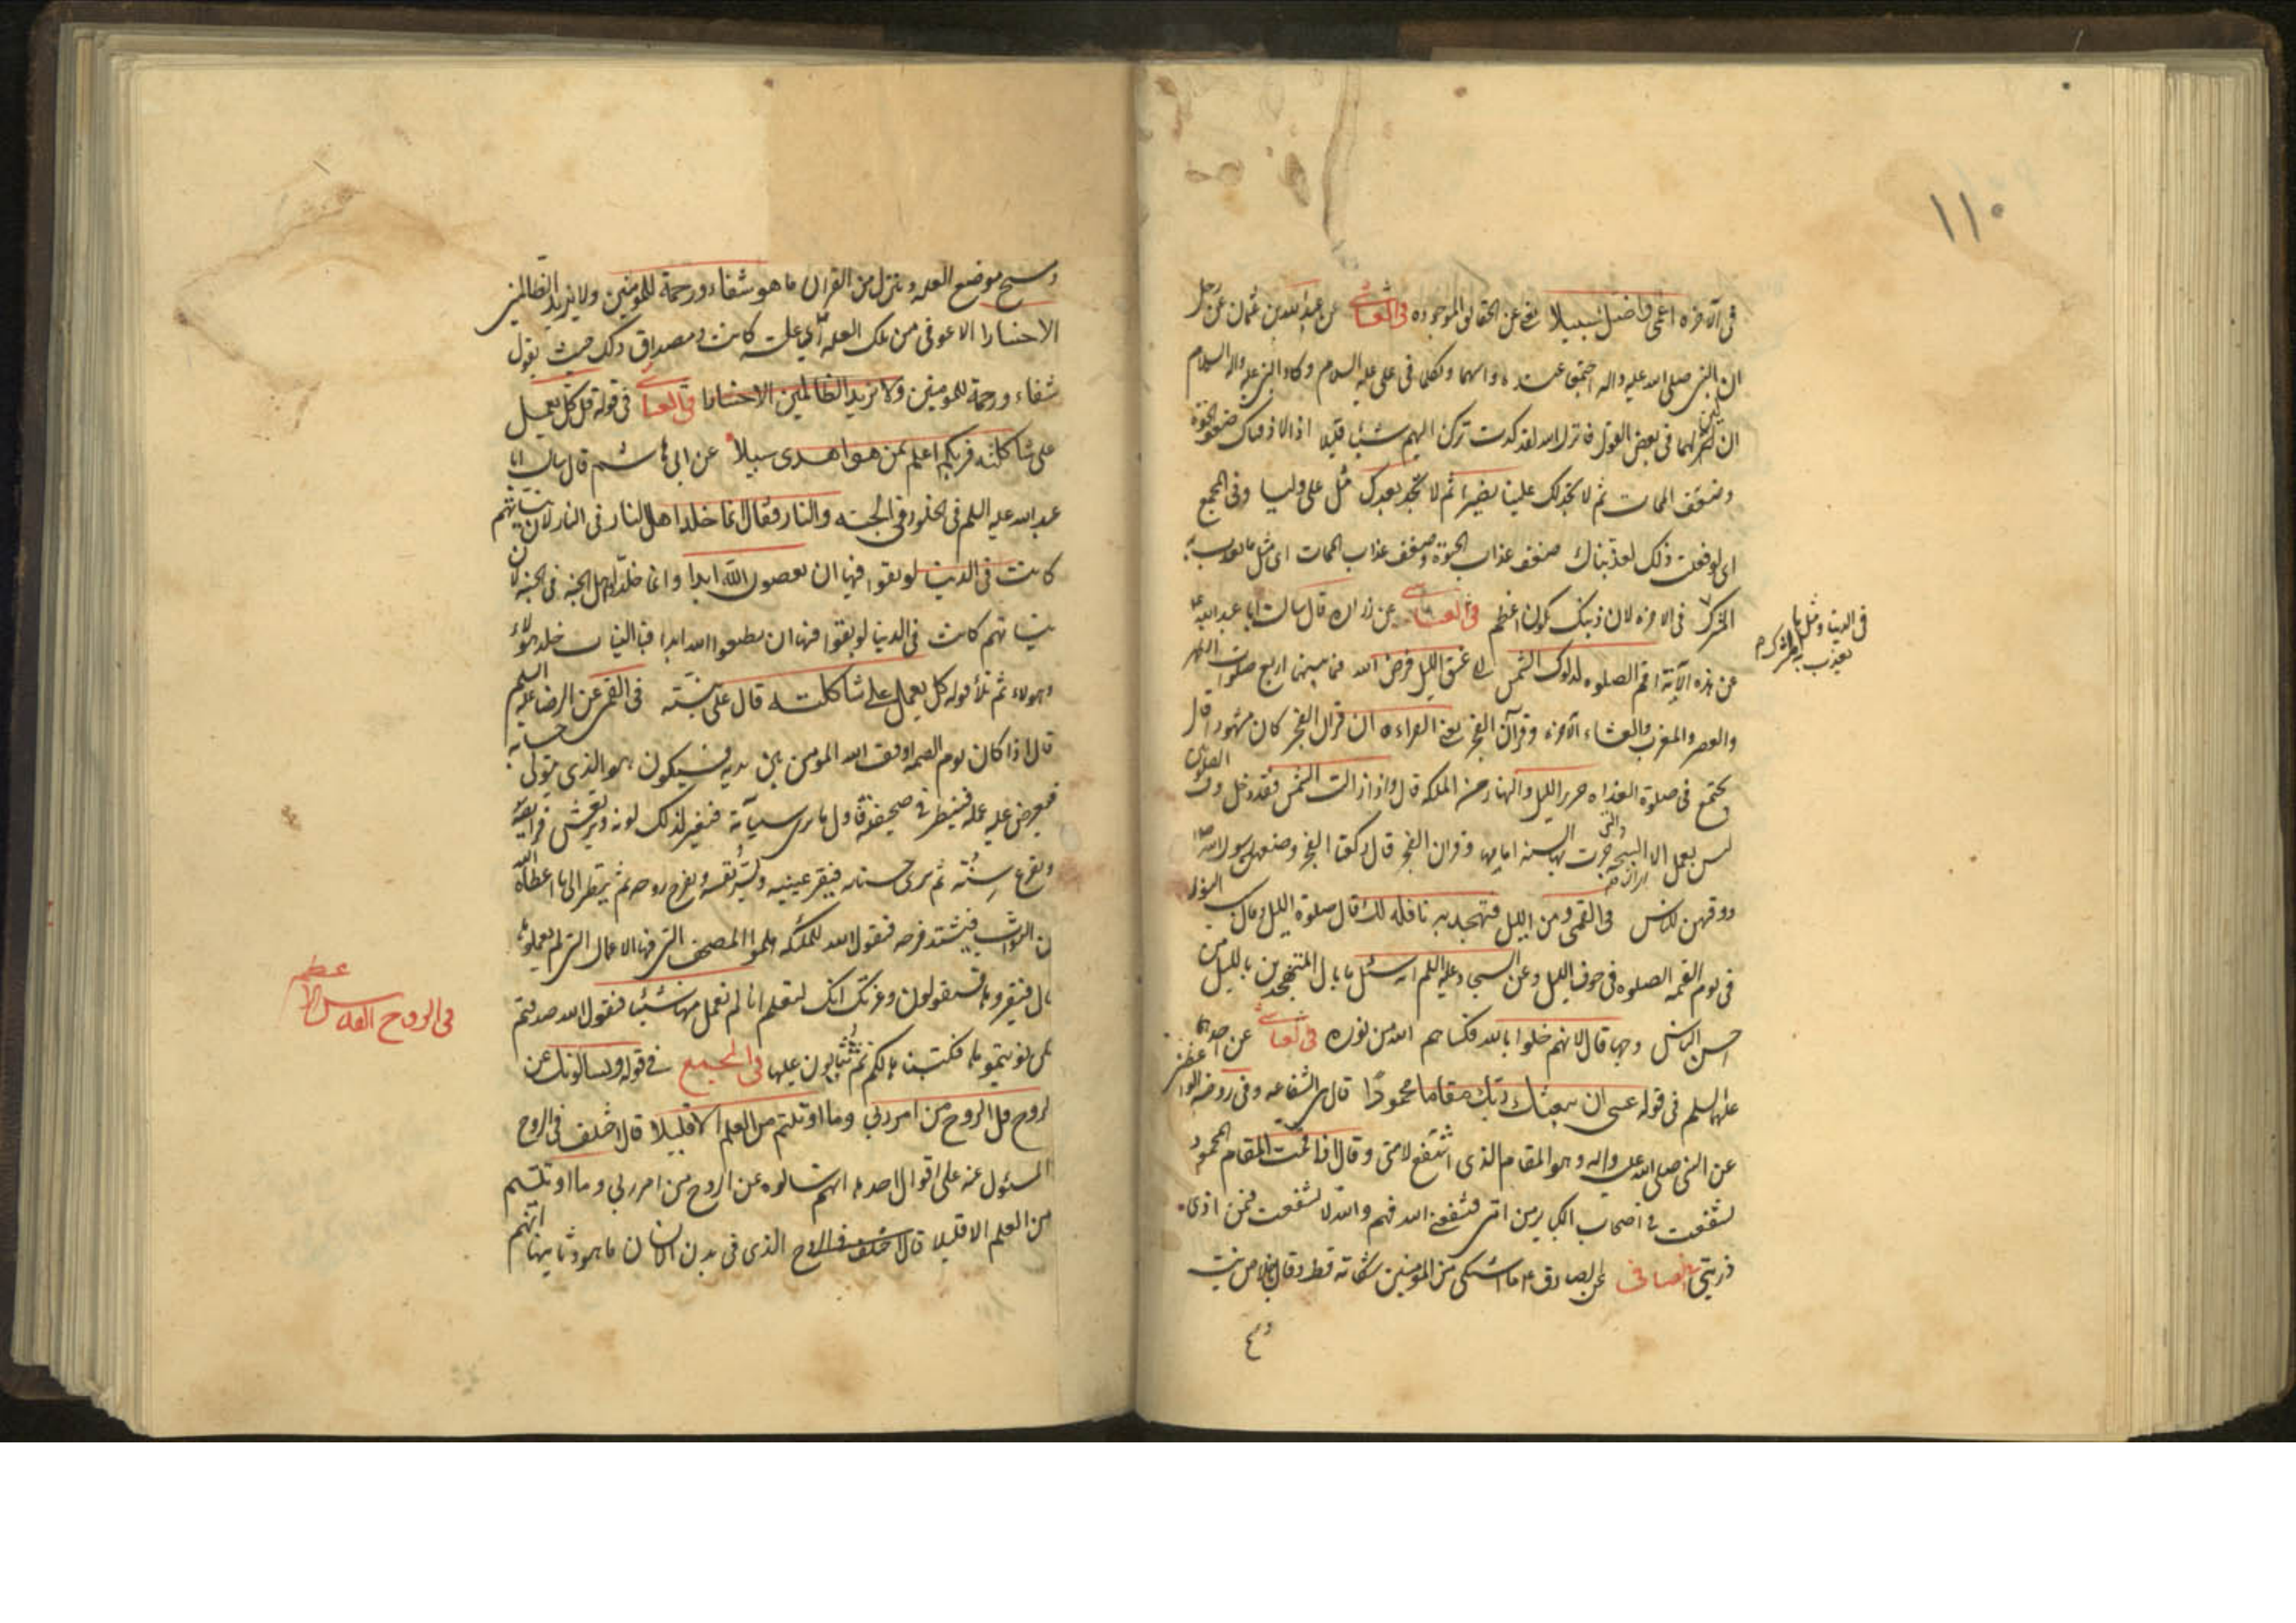 ١١٠
فى الآخرة اعمى واضل سبيلا يعنى عن الحقائق الموجودة فى العياشى عن عبدالله بن عثمان عن رجل
ان النبى صلى الله عليه واله اجتمعا عنده وابنتهما فتكلما فى على عليه السلام وكان النبى عليه واله السلام
ان يلين لهما فى بعض القول فانزل الله لقد كدت تركن اليهم شيئا قليلا اذا لاذقناك ضعف الحيوة
وضعف الممات ثم لا تجد لك علينا نصيرا ثم لا تجد بعدك مثل على وليا وفى المجمع
اى لو فعلت ذلك لعذبناك ضعف عذاب الحيوة وضعف عذاب الممات اى مثل ما نعذب به
المشرك فى الاخره لان ذنبك يكون اعظم فى العياشى عن زراره قال سالت ابا عبد الله ع
فى الدنيا ومثل ما
يعذب به المشرك م
عن هذه الآية اقم الصلوه لدلوك الشمس الى غسق الليل فرض الله فيما بينهما اربع صلوات الظهر
والعصر والمغرب والعشاء الآخرة وقرآن الفجر يعنى القراءه ان قرآن الفجر كان مشهودا قال
يجتمع فى صلوة الغداه حرس الليل والنهار من الملئكه قال واذا زالت الشمس فقد دخل وقت الصلوتين
ليس يعمل الا السبحة التى جرت بها السنه امامها وقران الفجر قال ركعتا الفجر وضعهن رسول الله ص
ووقتهن للناس فى القمى ومن الليل فتهجد به نافله لك قال صلوة الليل وقال سبب النور
فى يوم القيمه الصلوه فى جوف الليل وعن السجاد عليه السلم انه سئل ما بال المتهجدين بالليل من
احسن الناس وجها قال لانهم خلوا بالله فكساهم الله من نوره فى العياشى عن احدهما
عليهما السلم فى قوله عسى ان يبعثك ربك مقاما محمودا قال هى الشفاعه وفى روضة الواعظين
عن النبى صلى الله عليه واله وهو المقام الذى اشفع لامتى وقال اذا قمت المقام المحمود
لشفعت فى اصحاب الكبائر من امتى فيشفعنى الله فيهم والله لا تشفعت فيمن اذى
ذريتى فى الصافى عن الصادق ع ما اشتكى من المؤمنين شكاته قط وقال باخلاص نيت
ومسح
ومسح موضع العله وننزل من القران ما هو شفاء ورحمة للمومنين ولا يزيد الظالمين
الا خسارا الا عوفى من تلك العله اى علة كانت ومصداق ذلك حيث يقول
شفاء ورحمة للمومنين ولا يزيد الظالمين الا خسارا فى العياشى فى قوله قل كل يعمل
على شاكلته فربكم اعلم بمن هو اهدى سبيلا عن ابى هاشم قال سالت ابا
عبد الله عليه السلم فى الخلود فى الجنه والنار فقال انما خلد اهل النار فى النار لان نياتهم
كانت فى الدنيا لو بقوا فيها ان يعصون الله ابدا وانما خلد اهل الجنة فى الجنة لان
نياتهم كانت فى الدنيا لو بقوا فيها ان يطيعوا الله ابدا فبالنيات خلد هؤلاء
وهولاء ثم تلا قوله كل يعمل على شاكلته قال على نيته فى القمى عن الرضا عليه السلم
قال اذا كان يوم القيمه اوقف الله المومن بين يديه فيكون هو الذى يتولى حسابه
فيعرض عليه عمله فينظر فى صحيفته فاول ما يرى سيئاته فيتغير لذلك لونه ويرتعش فرايصه
وتفزع نفسه ثم يرى حسناته فيقر عينيه وتسر نفسه ويفرح روحه ثم ينظر الى ما اعطاه الله
من الثواب فيشتد فرحه فيقول الله للملئكه هلموا الصحف التى فيها الاعمال التى لم يعملوها
قال فيقروها فيقولون وعزتك انك لتعلم انا لم نعمل منها شيئا فيقول الله صدقتم
لكن نويتموها فكتبناها لكم ثم يثابون عليها فى المجمع فى قوله ويسالونك عن
الروح قل الروح من امر ربى وما اوتيتم من العلم الا قليلا قال اختلف فى الروح
المسئول عنه على اقوال احدها انهم سالوه عن الروح من امر ربى وما اوتيتم
من العلم الا قليلا قال اختلف فى الروح الذى فى بدن الانسان ما هو وثانيها انهم
فى الروح